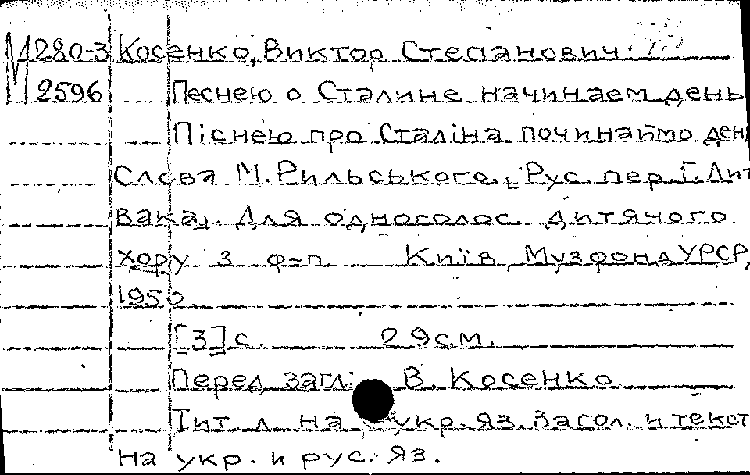 М 280-3 Косенко, Виктор Степанович.
М 2596 Песнею о Сталине начинаем день
Піснею про Сталіна починаймо ден
Слова М. Рильського. Рус. пер. Г. Лит
вака. Для одноголос. дитячого
хору з ф-п. Київ, Музфонд УРСР,
1950
[3] с. 29 см.
Перед загл: В. Косенко
Тит. л. на укр. яз. Загол. и текст
на укр. и рус. яз.